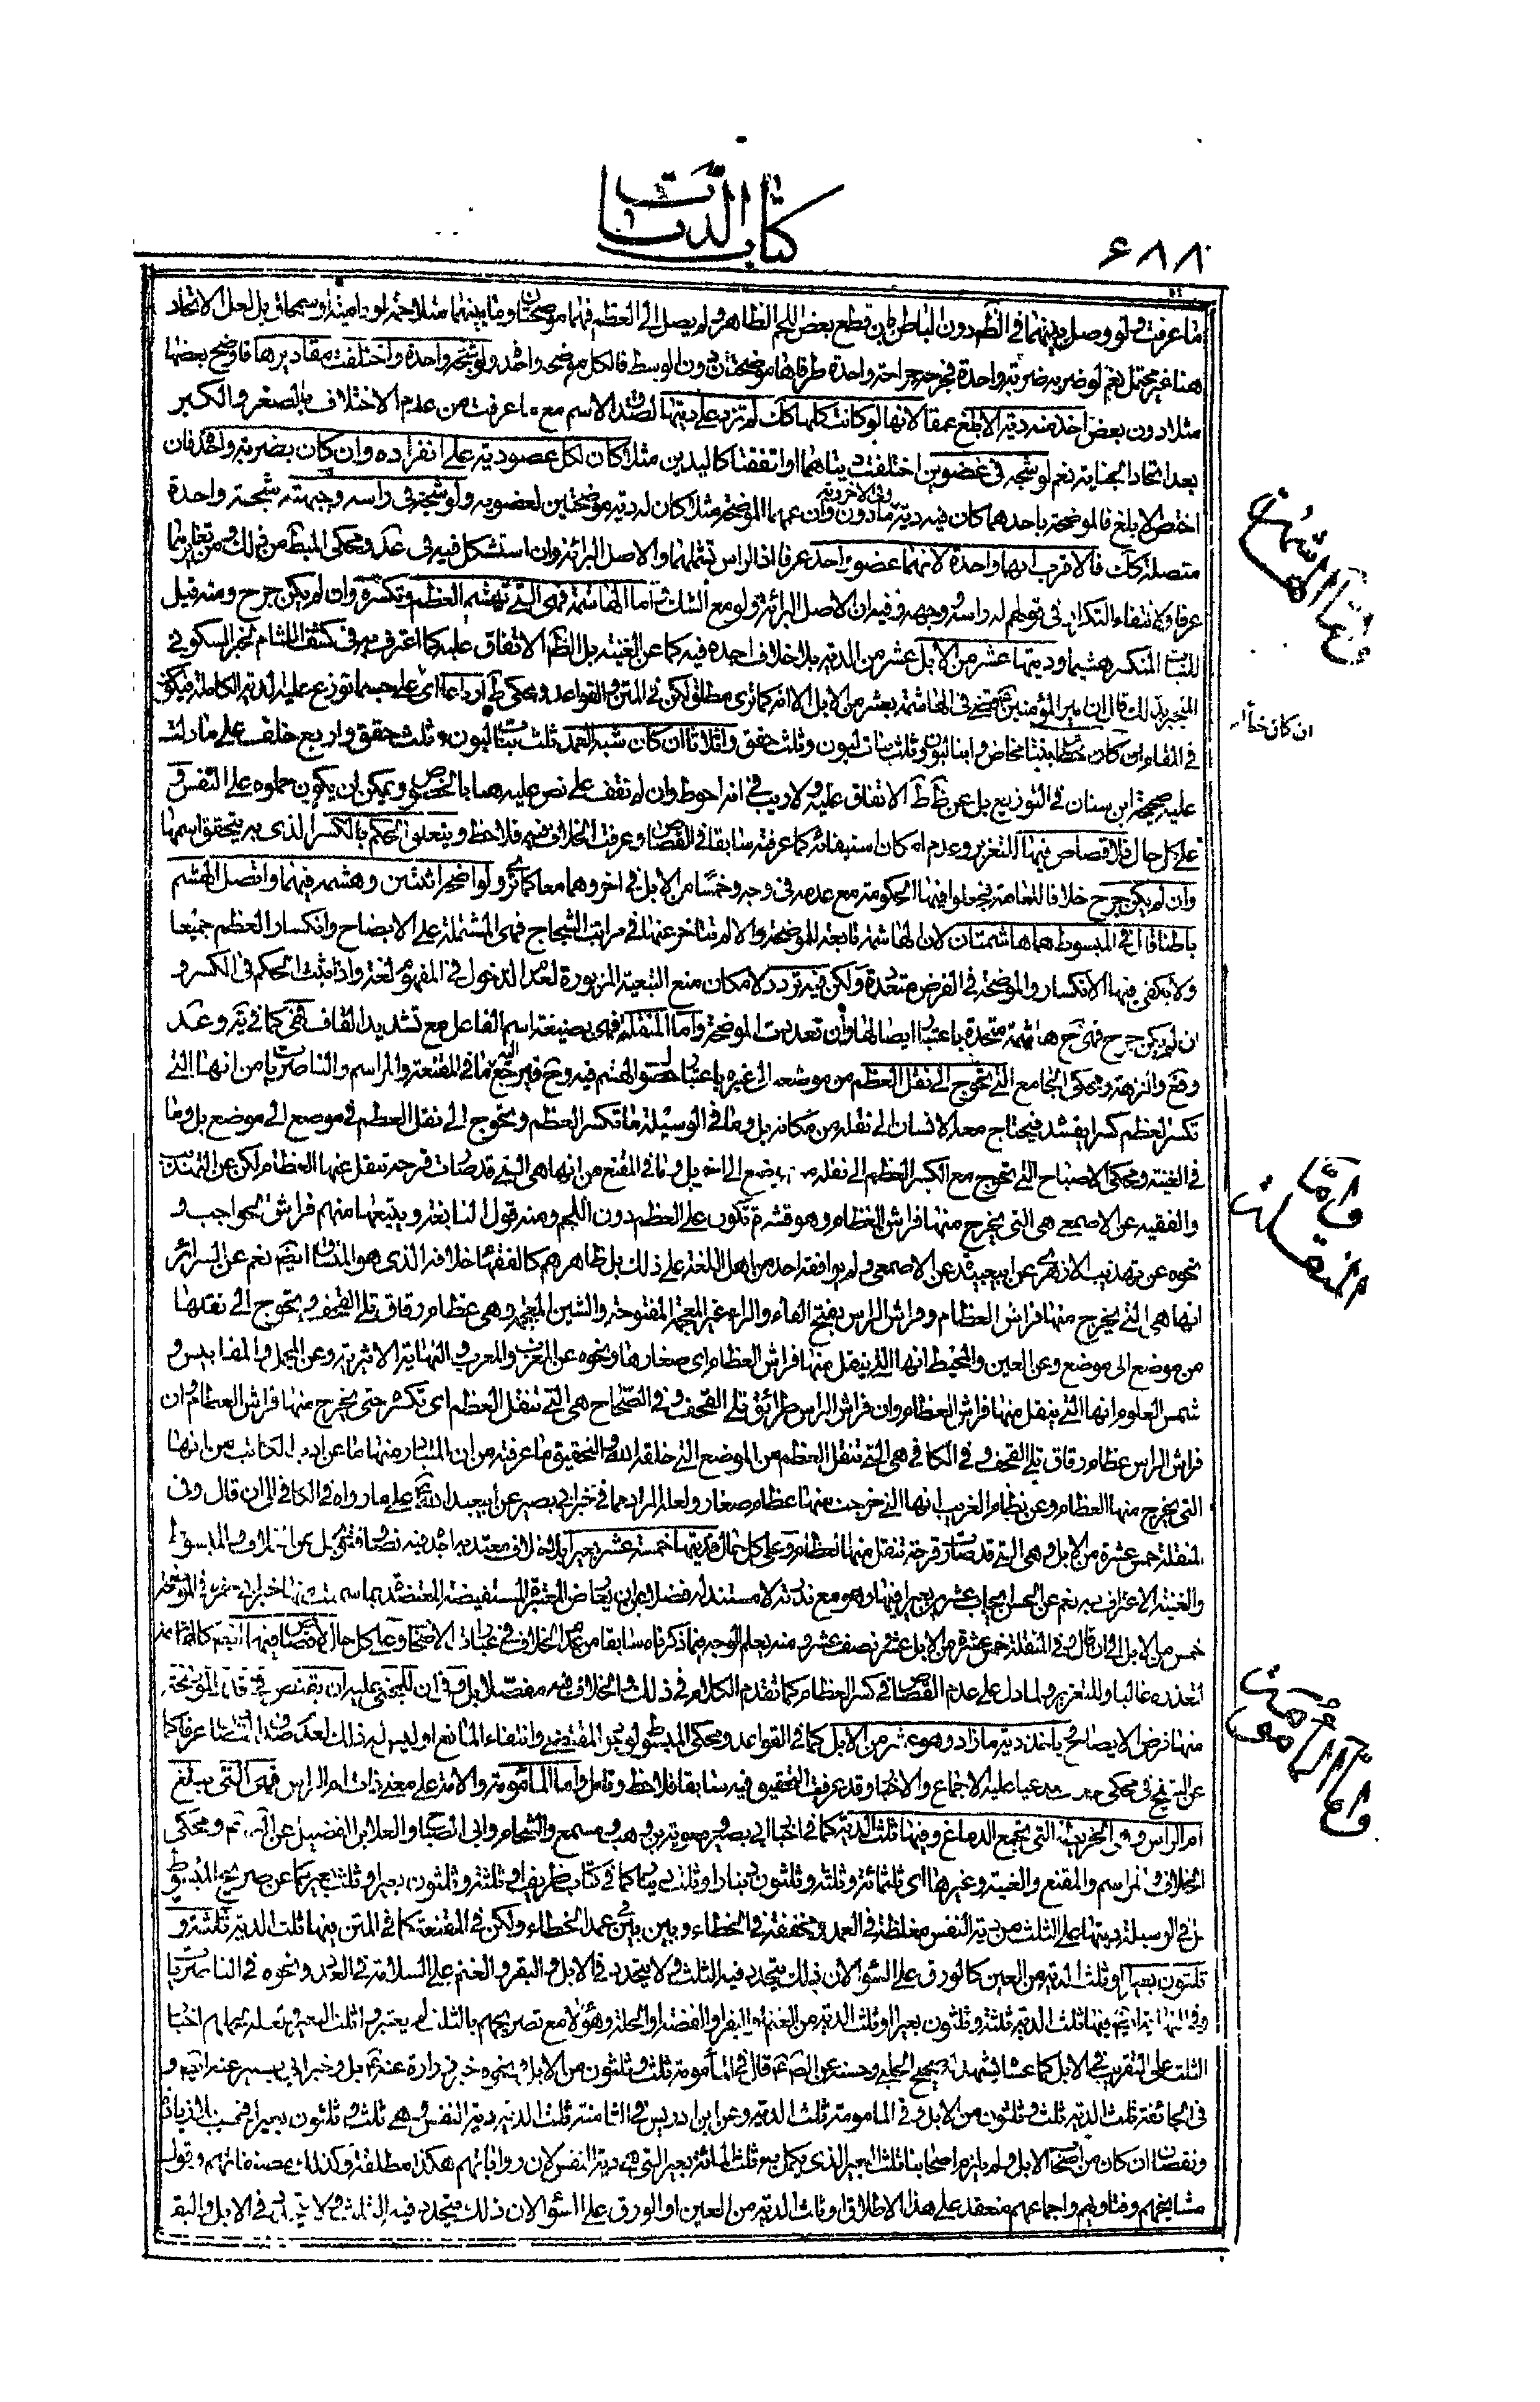 ۶۸۸
كتاب الديات
ما عرفت ولو وصل بينهما في الظاهر دون الباطن بان قطع بعض اللحم الظاهر ولم يصل الى العظم فهما موضحتان وما بينهما مثلا حارصة او دامية او سمحاق بل لعل الاتحاد
هنا غير محتمل نعم لو ضربه ضربة واحدة فجرحه جراحة واحدة طرفاها موضحتان دون الوسط فالكل موضحة واحدة ولو شجه واحدة واختلفت مقاديرها فاوضح بعضها
مثلا دون بعض اخذ منه دية الابلغ عمقا لانها لو كانت كلها كك لم تزد على ديتها لصدق الاسم مع ما عرفت من عدم الاختلاف بالصغر والكبر
بعد اتحاد الجناية نعم لو شجه في عضوين اختلفت ديتاهما او اتفقتا كاليدين مثلا كان لكل عضو دية على انفراده وان كان بضربة واحدة فان
اختص الابلغ فالموضحة باحدهما كان فيه دية وفي الاخر دية ما دون وان عمهما الموضحة مثلا كان له دية موضحتين لعضويه ولو شجه في راسه وجبهته شجة واحدة
متصلة كك فالاقرب انها واحدة لانهما عضو واحد عرفا اذ الراس تشملهما والاصل البرائة وان استشكل فيه في عد ومحكي المبسوط من ذلك ومن تغايرهما
عرفا ولانتفاء التكرار في قولهم له راسه ووجهه وفيه ان الاصل البرائة ولو مع الشك واما الهاشمة فهي التي تهشم العظم وتكسره وان لم يكن جرح ومنه قيل
للنبات المنكسر هشيما وديتها عشر من الابل عشر من الدية بلا خلاف اجده فيه كما عن الغنية بل الظاهر الاتفاق عليه كما اعترف به في كشف اللثام لخبر السكوني
المنجبر بذلك قال ان امير المؤمنين قضى في الهاشمة بعشر من الابل الا انه كما ترى مطلق لكن في المتن والقواعد ومحكي ط ارباعا اي على حسب ما توزع عليه الدية الكاملة فيكون
في المقام ان كان خطا بنتا مخاض وابنا لبون وثلث بنات لبون وثلث حقق واثلاثا ان كان شبه العمد ثلث بنات لبون وثلث حقق واربع خلف على ما دلت
عليه صحيحة ابن سنان في التوزيع بل عن ظاهر ط الاتفاق عليه ولا ريب في انه احوط وان لم نقف على نص عليه هنا بالخصوص ويمكن ان يكون حملوه على النفس و
على كل حال فلا قصاص فيها للتغرير وعدم امكان استيفائه كما عرفته سابقا في القصاص وعرفت الخلاف فيه فلاحظ ويتعلق الحكم بالكسر الذي به يتحقق اسمها
وان لم يكن جرح خلافا للعامة فجعلوا فيها الحكومة مع عدمه في وجه وخمسا من الابل في اخر وهما معا كما ترى ولو اوضحه اثنتين وهشمه فيهما واتصل الهشم
باطنا قال في المبسوط هما هاشمتان لان الهاشمة تابعة للموضحة والا لم تتاخر عنها في مراتب الشجاج فهي المشتملة على الايضاح وانكسار العظم جميعا
ولا يكفي فيها الانكسار والموضحة في الفرض متعددة ولكن فيه تردد لامكان منع التبعية المزبورة لعدم الدخول في المفهوم لغة ولذا ثبت الحكم في الكسر و
ان لم يكن جرح فهي ح هاشمة متحدة باعتبار ايصالها وان تعددت الموضحة واما المنقلة فهي بصيغة اسم الفاعل مع تشديد القاف فهي كما في يه وعد
وفع والنزهة ومحكي الجامع التي تحوج الى نقل العظم من موضعه الى غيره باعتبار حصول الهشم فيه وح فيرجع اليه ما في المقنعة والمراسم والناصريات من انها التي
تكسر العظم كسرا يفسده فيحتاج معه الانسان الى نقله من مكانه بل وما في الوسيلة ما تكسر العظم ويحوج الى نقل العظم في موضع الى موضع بل وما
في الغنية ومحكي الاصباح التي تحوج مع الكسر العظم الى نقله من موضع الى اخر بل وما في المقنع من انها هي التي قد صارت قرحة تنقل عنها العظام لكن عن التهذيب
والفقيه عن الاصمعي هي التي يخرج منها فراش العظام وهو قشرة تكون على العظم دون اللحم ومنه قول النابغة ويتبعها منهم فراش الحواجب و
نحوه عن تهذيب الازهري عن ابي عبيد عن الاصمعي ولم يوافقه احد من اهل اللغة على ذلك بل ظاهرهم كالفقهاء خلافه الذي هو المتبادر ايضا نعم عن السرائر
انها هي التي يخرج منها فراش العظام وفراش الراس بفتح الفاء والراء غير المعجمة المفتوحة والشين المعجمة وهي عظام رقاق تلي القحف وتحوج الى نقلها
من موضع الى موضع وعن العين والمحيط انها التي ينقل منها فراش العظام اي صغارها ونحوه عن المغرب والمعرب والنهاية الاثيرية وعن المجمل والمقاييس و
شمس العلوم انها التي ينقل منها فراش العظام وان فراش الراس طرائق تلي القحف وفي الصحاح هي التي تنقل العظم اي تكسره حتى يخرج منها فراش العظام وان
فراش الراس عظام رقاق تلي القحف وفي الكافي هي التي تنقل العظم من الموضع التي خلقه الله والتحقيق ما عرفته من ان المتبادر منها ما عن ادب الكاتب من انها
التي يخرج منها العظام وعن نظام الغريب انها التي خرجت منها عظام صغار ولعله المراد مما في خبر ابي بصير عن ابي عبد الله ع على ما رواه في الكافي الى ان قال وفي
المنقلة خمس عشرة من الابل وهي التي قد صارت قرحة تنقل منها العظام وعلى كل حال فديتها خمسة عشر بعيرا بلا خلاف معتد به اجده فيه نصا وفتوى بل عن الخلاف والمبسوط
والغنية الاعتراف به نعم عن الحسن ايجاب عشرين بعيرا فيها وهو مع ندرته لا مستند له فضلا عن ان يعارض المعتبرة المستفيضة المعتضدة بما سمعت منها خبر ابي مريم في الموضحة
خمس من الابل الى ان قال وفي المنقلة خمس عشرة من الابل عشر ونصف عشر ومنه يعلم الوجه فيما ذكرناه سابقا من عدم الخلاف في عبارات الاصحاب وعلى كل حال لا قصاص فيها ايضا كالهاشمة
لتعذره غالبا وللتغرير ولما دل على عدم القصاص في كسر العظام كما تقدم الكلام في ذلك والخلاف فيه مفصلا بل وفي ان للمجني عليه ان يقتص في قدر الموضحة
منها فرض الايضاح ياخذ دية ما زاد وهو عشر من الابل كما في القواعد ومحكي المبسوط لوجود المقتضي وانتفاء المانع او ليس له ذلك لعدم صدق القصاص عرفا كما
عن الشيخ في محكي مدعيا عليه الاجماع والاخبار وقد عرفت التحقيق فيه سابقا فلاحظ وتامل واما المامومة والامة على معنى ذات ام الراس فهي التي تبلغ
ام الراس وهي الخريطة التي تجمع الدماغ وفيها ثلث الدية كما في اخبار ابي بصير ومعوية بن وهب ومسمع والشحام وابي الصباح والعلا بن الفضيل عن الصادق ع ومحكي
الخلاف والمراسم والمقنع والغنية وغيرها اي ثلثمائة وثلثة وثلثون دينارا وثلث دينار كما في كتاب ظريف او ثلثة وثلثون بعيرا وثلث بعير كما عن صريح المبسوط
بل في الوسيلة ديتها على الثلث من دية النفس مغلظة في العمد ومخففة في الخطاء وبين بين في عمد الخطاء ولكن في المقنعة كما في المتن فيها ثلث الدية ثلثة و
ثلثون بعيرا او ثلث الدية من العين كالورق على السواء لان ذلك يتحدد فيه الثلث ولا يتحدد في الابل والبقر والغنم على السلامة في العدد ونحوه في الناصريات
وفي النهاية ايضا فيها ثلث الدية ثلثة وثلثون بعيرا او ثلث الدية من الغنم او البقر او الفضة او الحلة وهؤلاء مع تصريحهم بالثلث لم يعتبروا ثلث البعير ولعله لحملهم اخبار
الثلث على التقريب في الابل كما عساه يشهد له صحيح الحلبي وحسنه عن الصادق ع قال في المأمومة ثلث وثلثون من الابل ونحوه خبر زرارة عنه ع بل وخبر ابي بصير عنه ايضا و
في الجائفة ثلث الدية ثلث وثلثون من الابل وفي المامومة ثلث الدية وعن ابن ادريس في الثامنة ثلث الدية دية النفس وهي ثلث وثلثون بعيرا فحسب بلا زيادة
ونقصان ان كان من اصحاب الابل ولم يلزم اصحابنا ثلث البعير الذي يكمل به ثلث المائة بعير التي هي دية النفس لان رواياتهم هكذا مطلقة وكذلك مصنفاتهم وقول
مشايخهم وفتاويهم واجماعهم منعقد على هذا الاطلاق او ثلث الدية من العين او الورق على السواء لان ذلك يتحدد فيه الثلث ولا يتحدد في الابل والبقر
واما الهاشمة
ان كان خطأ
واما المنقلة
واما المامومة